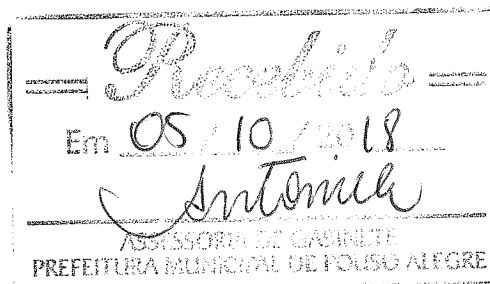 Recebido
Em 05 / 10 / 2018
Antonieli
ASSESSORIA DE GABINETE
PREFEITURA MUNICIPAL DE POUSO ALEGRE